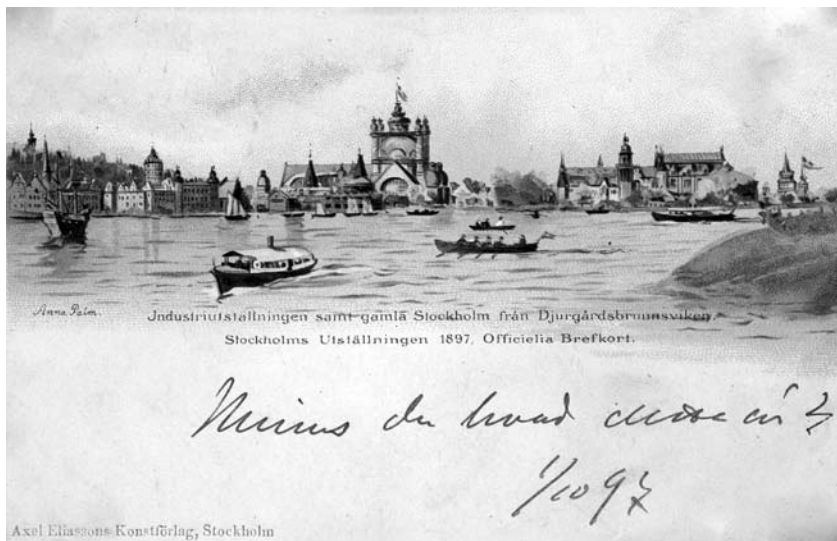 Anna Palm.
Industriutställningen samt gamla Stockholm från Djurgårdsbrunnsviken.
Stockholms Utställningen 1897, Officiella Brefkort.
Minns du hvad detta är?
1/10 97
Axel Eliassons Konstförlag, Stockholm